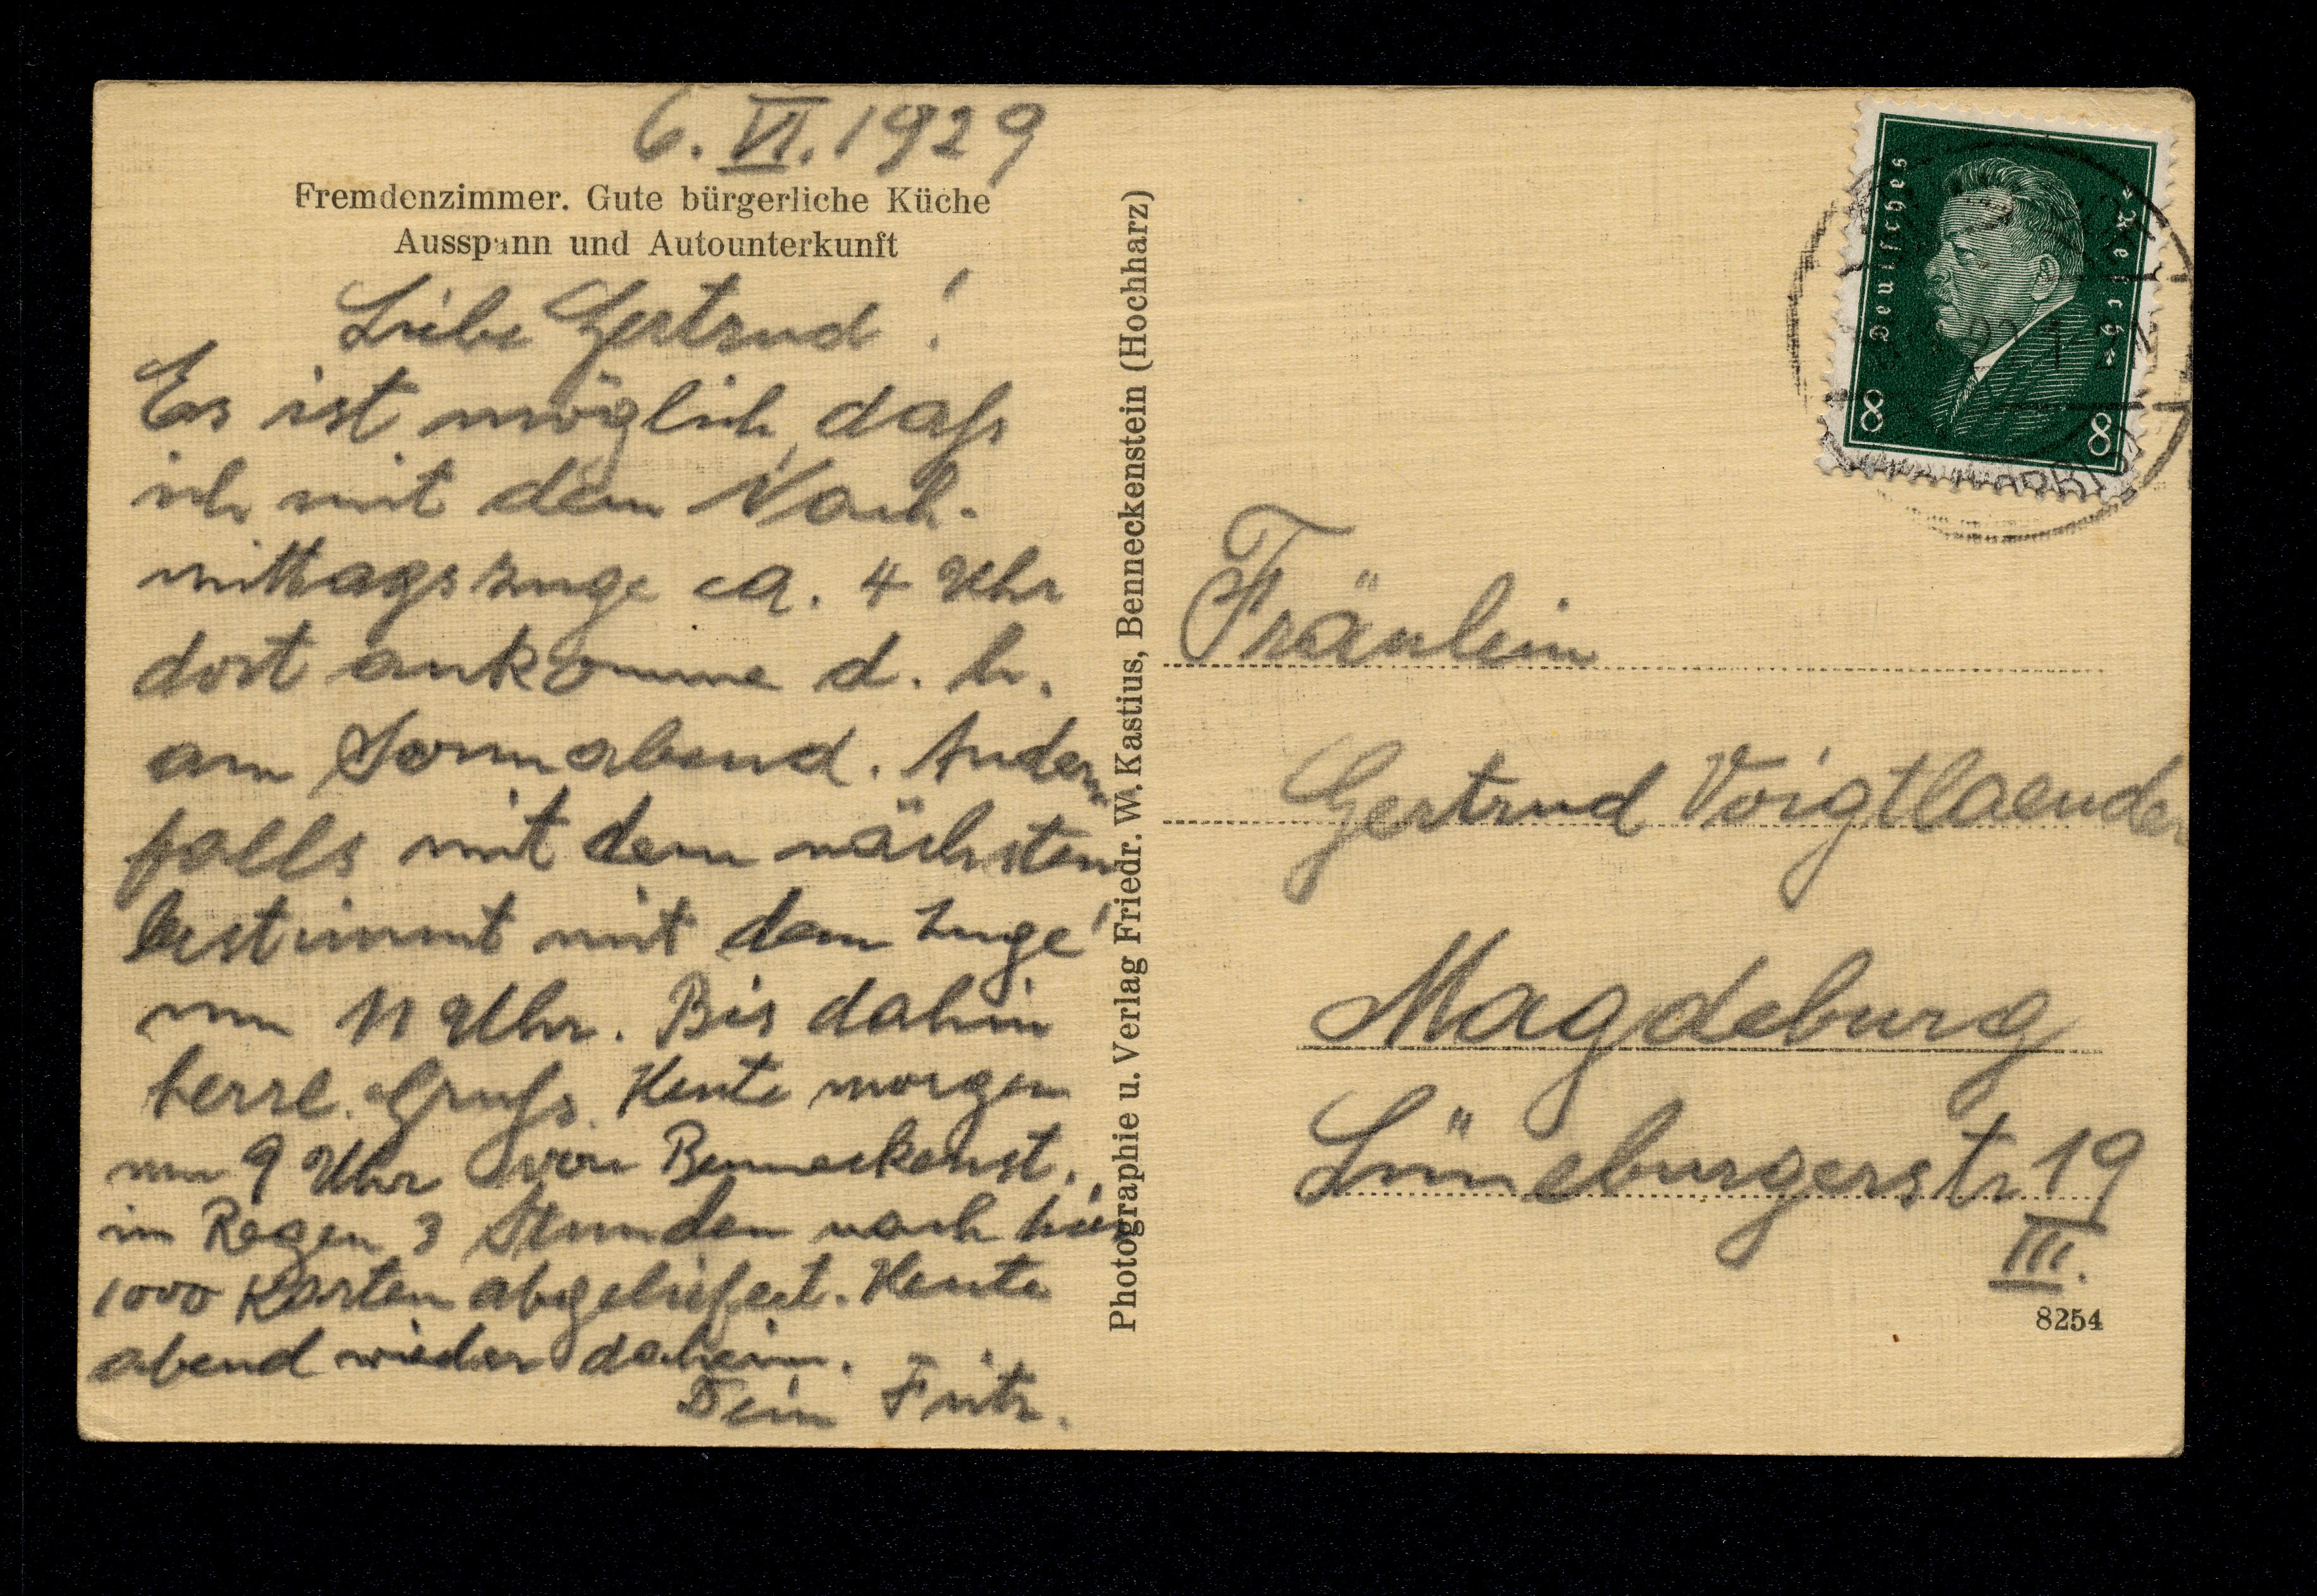 6. VI. 1929
Fremdenzimmer. Gute bürgerliche Küche
Ausspann und Autounterkunft
Liebe Gertrud!
Es ist möglich, daß
ich mit dem Nach-
mittagszuge ca. 4 Uhr
dort ankomme d. h.
am Sonnabend. Andern
falls mit dem nächsten
bestimmt mit dem Zuge
um 11 Uhr. Bis dahin
herzl. Gruß. Heute morgen
um 9 Uhr von Benneckenst.
im Regen 3 Stunden nach hier
1000 Karten abgeliefert. Heute
abend wieder daheim.
Dein Fritz.
Photographie u. Verlag Friedr. W. Kastius, Benneckenstein (Hochharz)
Deutsches Reich
8 8
Fräulein
Gertrud Voigtlaender
Magdeburg
Lüneburgerstr 19
III.
8254